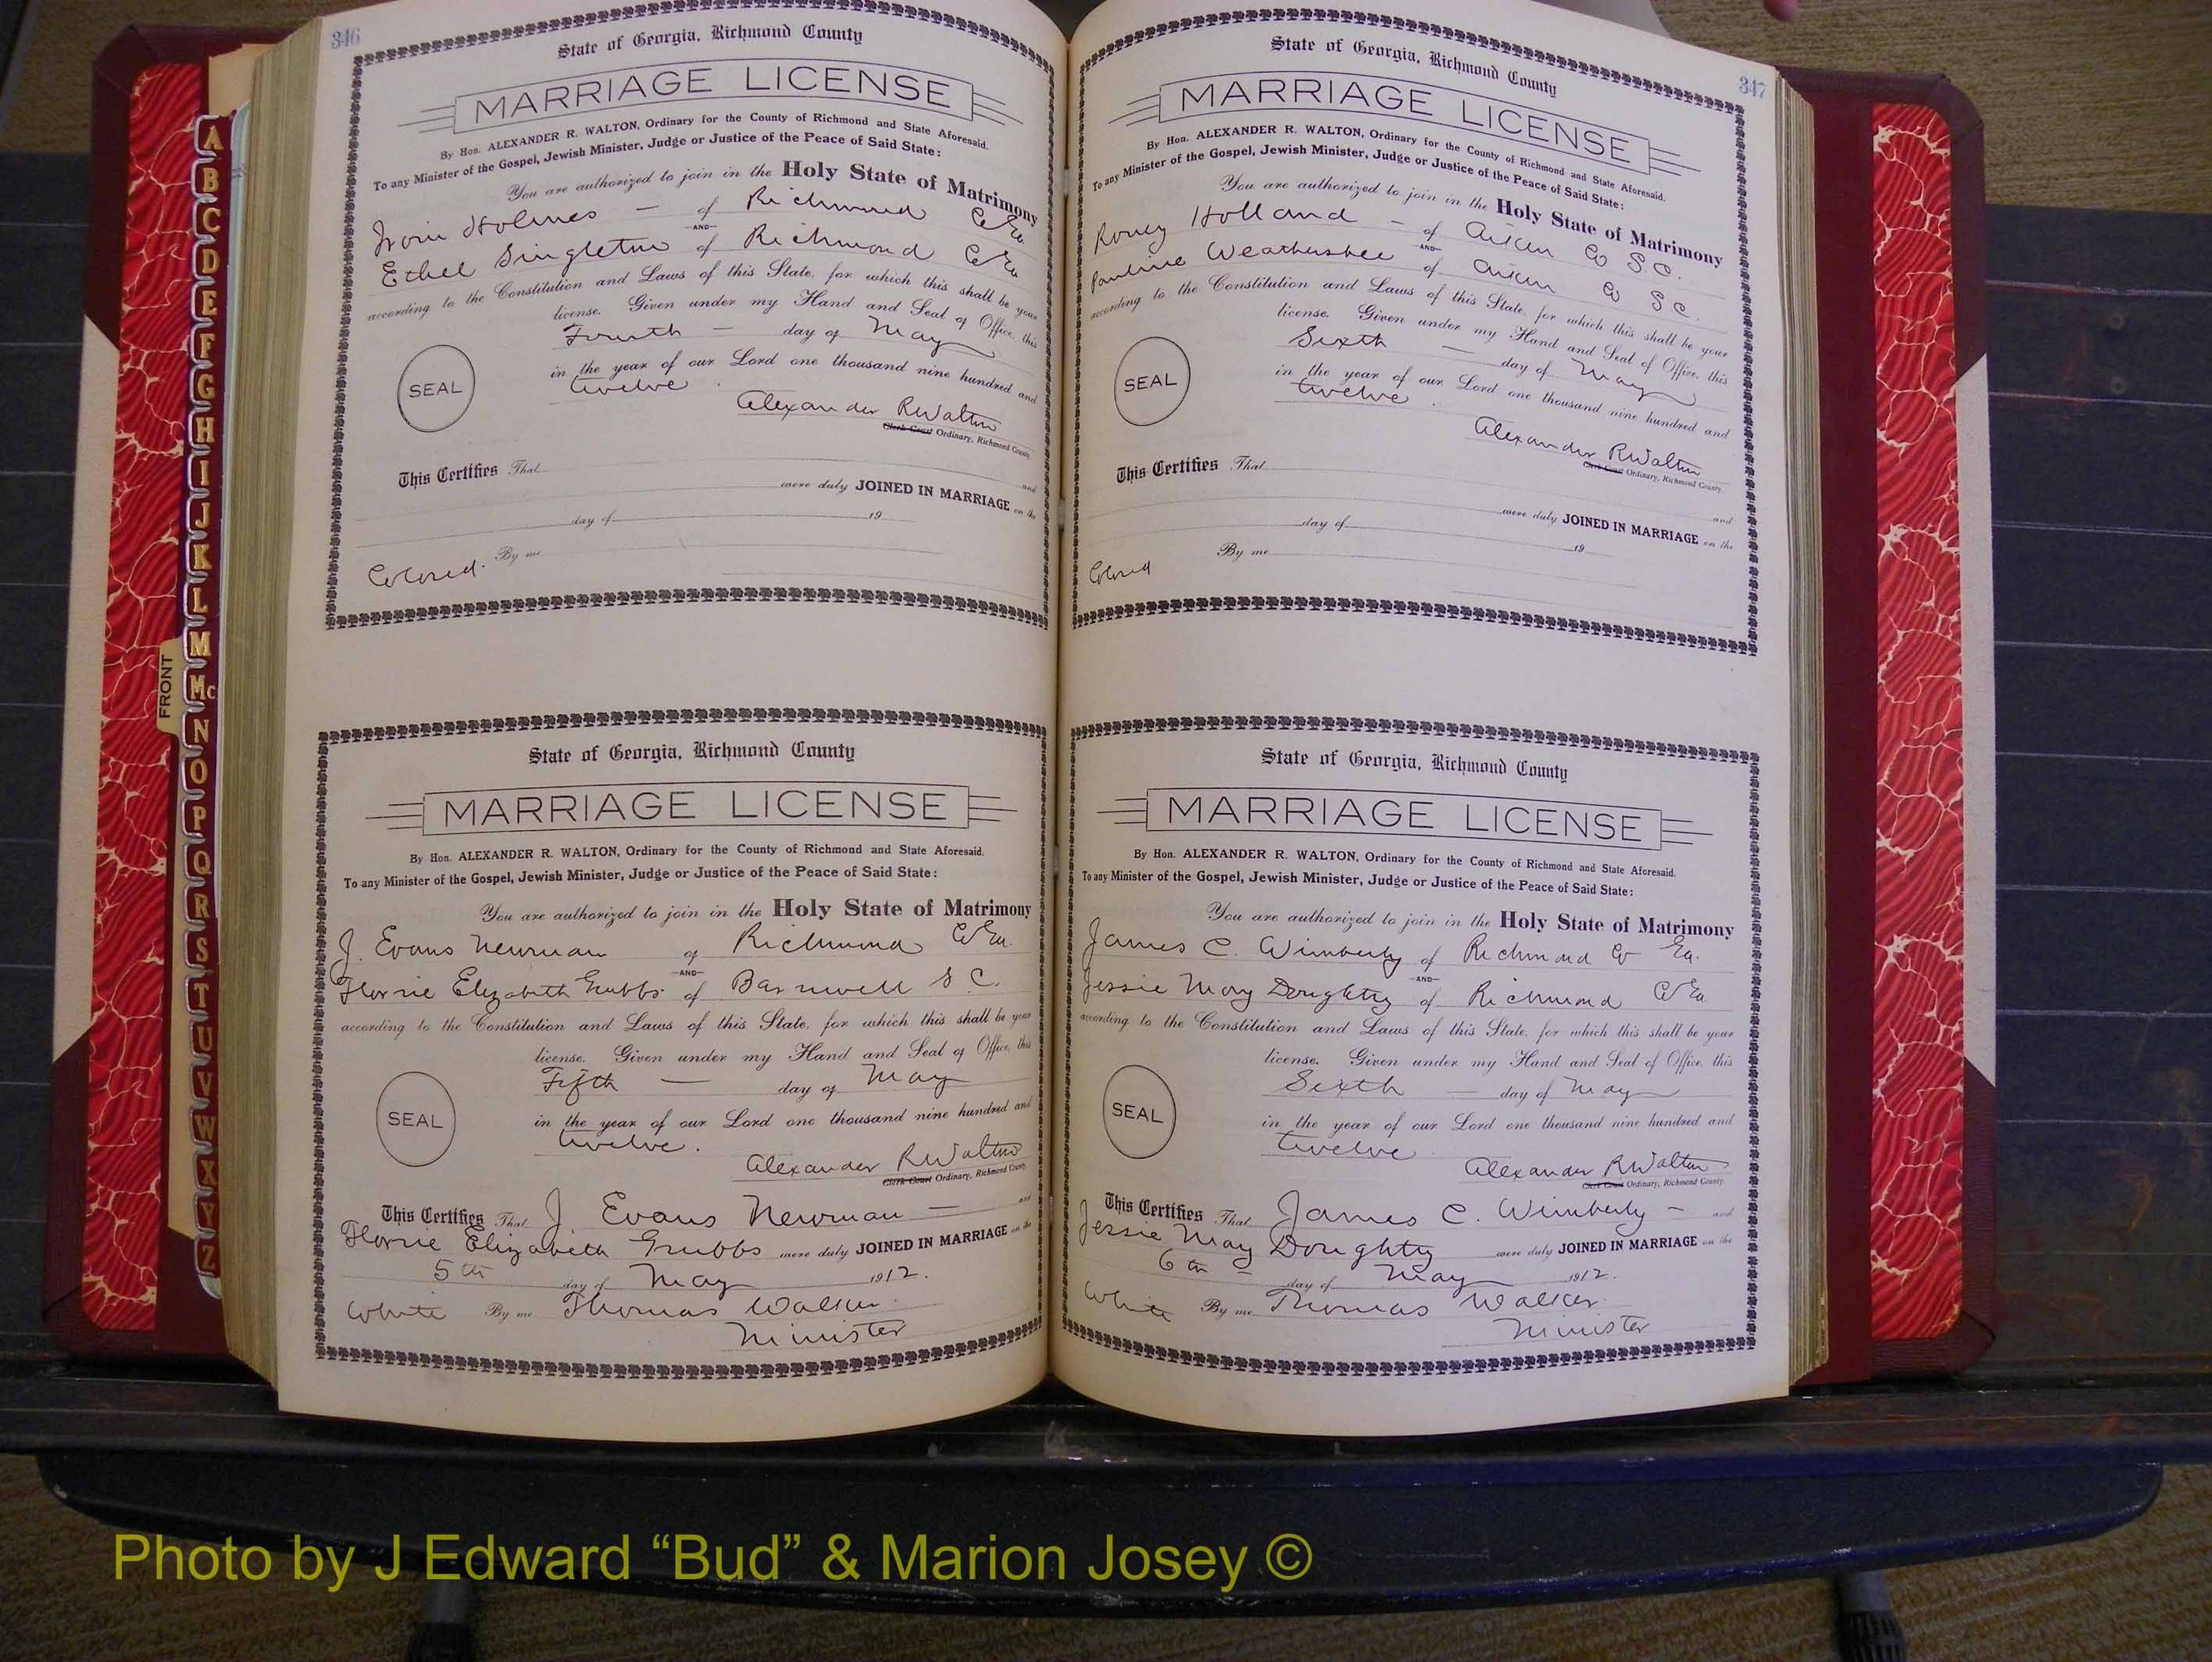 346
State of Georgia, Richmond County
MARRIAGE LICENSE
By Hon. ALEXANDER R. WALTON, Ordinary for the County of Richmond and State Aforesaid.
To any Minister of the Gospel, Jewish Minister, Judge or Justice of the Peace of Said State:
You are authorized to join in the Holy State of Matrimony
Holmes — of Richmond Co Ga
AND
Ethel Singleton of Richmond Co Ga
according to the Constitution and Laws of this State, for which this shall be your
license. Given under my Hand and Seal of Office, this
Fourth — day of May
in the year of our Lord one thousand nine hundred and
twelve.
SEAL
Alexander R Walton
Clerk Court Ordinary, Richmond County.
This Certifies That and
were duly JOINED IN MARRIAGE on the
day of 19
Colored. By me
State of Georgia, Richmond County
MARRIAGE LICENSE
By Hon. ALEXANDER R. WALTON, Ordinary for the County of Richmond and State Aforesaid.
To any Minister of the Gospel, Jewish Minister, Judge or Justice of the Peace of Said State:
You are authorized to join in the Holy State of Matrimony
J. Evans Newman of Richmond Co Ga.
AND
Florrie Elizabeth Grubbs of Barnwell S. C.
according to the Constitution and Laws of this State, for which this shall be your
license. Given under my Hand and Seal of Office, this
Fifth — day of May
in the year of our Lord one thousand nine hundred and
twelve.
SEAL
Alexander R Walton
Clerk Court Ordinary, Richmond County
This Certifies That J. Evans Newman — and
Florrie Elizabeth Grubbs were duly JOINED IN MARRIAGE on the
5th day of May 1912.
White By me Thomas Walker
Minister
347
State of Georgia, Richmond County
MARRIAGE LICENSE
By Hon. ALEXANDER R. WALTON, Ordinary for the County of Richmond and State Aforesaid.
To any Minister of the Gospel, Jewish Minister, Judge or Justice of the Peace of Said State:
You are authorized to join in the Holy State of Matrimony
Holland — of Aiken Co S.C.
AND
Pauline Weathersbee of Aiken Co S C.
according to the Constitution and Laws of this State, for which this shall be your
license. Given under my Hand and Seal of Office, this
Sixth — day of May
in the year of our Lord one thousand nine hundred and
twelve.
SEAL
Alexander R Walton
Clerk Court Ordinary, Richmond County.
This Certifies That and
were duly JOINED IN MARRIAGE on the
day of 19
Colored By me
State of Georgia, Richmond County
MARRIAGE LICENSE
By Hon. ALEXANDER R. WALTON, Ordinary for the County of Richmond and State Aforesaid.
To any Minister of the Gospel, Jewish Minister, Judge or Justice of the Peace of Said State:
You are authorized to join in the Holy State of Matrimony
James C. Wimberly of Richmond Co Ga.
AND
Jessie May Doughty of Richmond Co Ga.
according to the Constitution and Laws of this State, for which this shall be your
license. Given under my Hand and Seal of Office, this
Sixth — day of May
in the year of our Lord one thousand nine hundred and
twelve
SEAL
Alexander R Walton
Clerk Court Ordinary, Richmond County
This Certifies That James C. Wimberly — and
Jessie May Doughty were duly JOINED IN MARRIAGE on the
6th — day of May 1912.
White By me Thomas Walker
Minister
FRONT
A
B
C
D
E
F
G
H
I
J
K
L
M
Mc
N
O
P
Q
R
S
T
U
V
W
X
Y
Z
Photo by J Edward “Bud” & Marion Josey ©